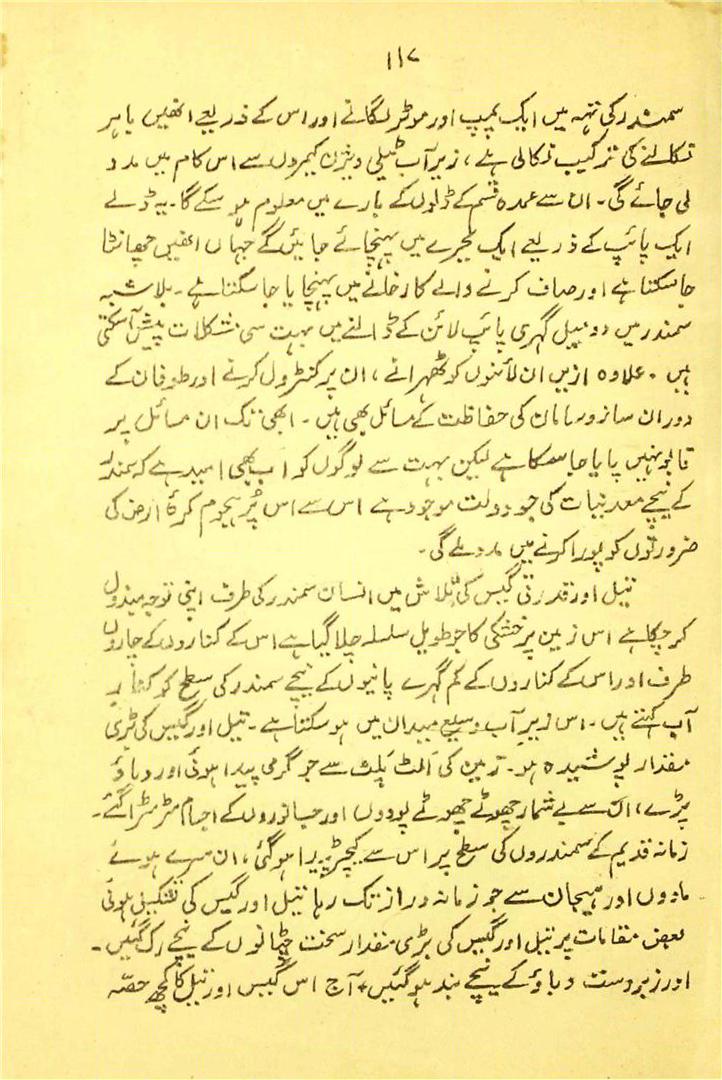 ۱۱۷
سمندر کی تہہ میں ایک پمپ اور موٹر لگانے اور اس کے ذریعے انھیں باہر
نکالنے کی ترکیب نکالی ہے، زیر آب ٹیلی ویژن کیمروں سے اس کام میں مدد
لی جائے گی۔ ان سے عمدہ قسم کے ڈلوں کے بارے میں معلوم ہو سکے گا۔ یہ ڈلے
ایک پائپ کے ذریعے ایک بجرے میں پہنچائے جائیں گے جہاں انھیں چھانٹا
جا سکتا ہے اور صاف کرنے والے کارخانے میں پہنچایا جا سکتا ہے۔ بلا شبہ
سمندر میں دو میل گہری پائپ لائن کے ڈالنے میں بہت سی مشکلات پیش آسکتی
ہیں۔ علاوہ ازیں ان لائنوں کو ٹھہرانے، ان پر کنٹرول کرنے اور طوفان کے
دوران ساز و سامان کی حفاظت کے مسائل بھی ہیں۔ ابھی تک ان مسائل پر
قابو نہیں پایا جا سکا ہے لیکن بہت سے لوگوں کو اب بھی امید ہے کہ سمندر
کے نیچے معدنیات کی جو دولت موجود ہے اس سے اس پُر ہجوم کرۂ ارض کی
ضرورتوں کو پورا کرنے میں مدد ملے گی۔
تیل اور قدرتی گیس کی تلاش میں انسان سمندر کی طرف اپنی توجہ مبذول
کر چکا ہے اس زمین پر خشکی کا جو طویل سلسلہ چلا گیا ہے اس کے کناروں کے چاروں
طرف اور اس کے کناروں کے کم گہرے پانیوں کے نیچے سمندر کی سطح کو کنارِ
آب کہتے ہیں۔ اس زیرِ آب وسیع میدان میں ہو سکتا ہے۔ تیل اور گیس کی بڑی
مقدار پوشیدہ ہو۔ زمین کی اُلٹ پَلٹ سے جو گرمی پیدا ہوئی اور دباؤ
پڑے، اس سے بے شمار چھوٹے چھوٹے پودوں اور جانوروں کے اجسام مڑ مڑا گئے۔
زمانہ قدیم کے سمندروں کی سطح پر اس سے کیچڑ پیدا ہو گئی، ان سڑے ہوئے
مادوں اور ہیجان سے جو زمانہ دراز تک رہا تیل اور گیس کی تشکیل ہوئی
بعض مقامات پر تیل اور گیس کی بڑی مقدار سخت چٹانوں کے نیچے رک گئیں۔
اور زبردست دباؤ کے نیچے بند ہو گئیں۔ آج اس گیس اور تیل کا کچھ حصّہ